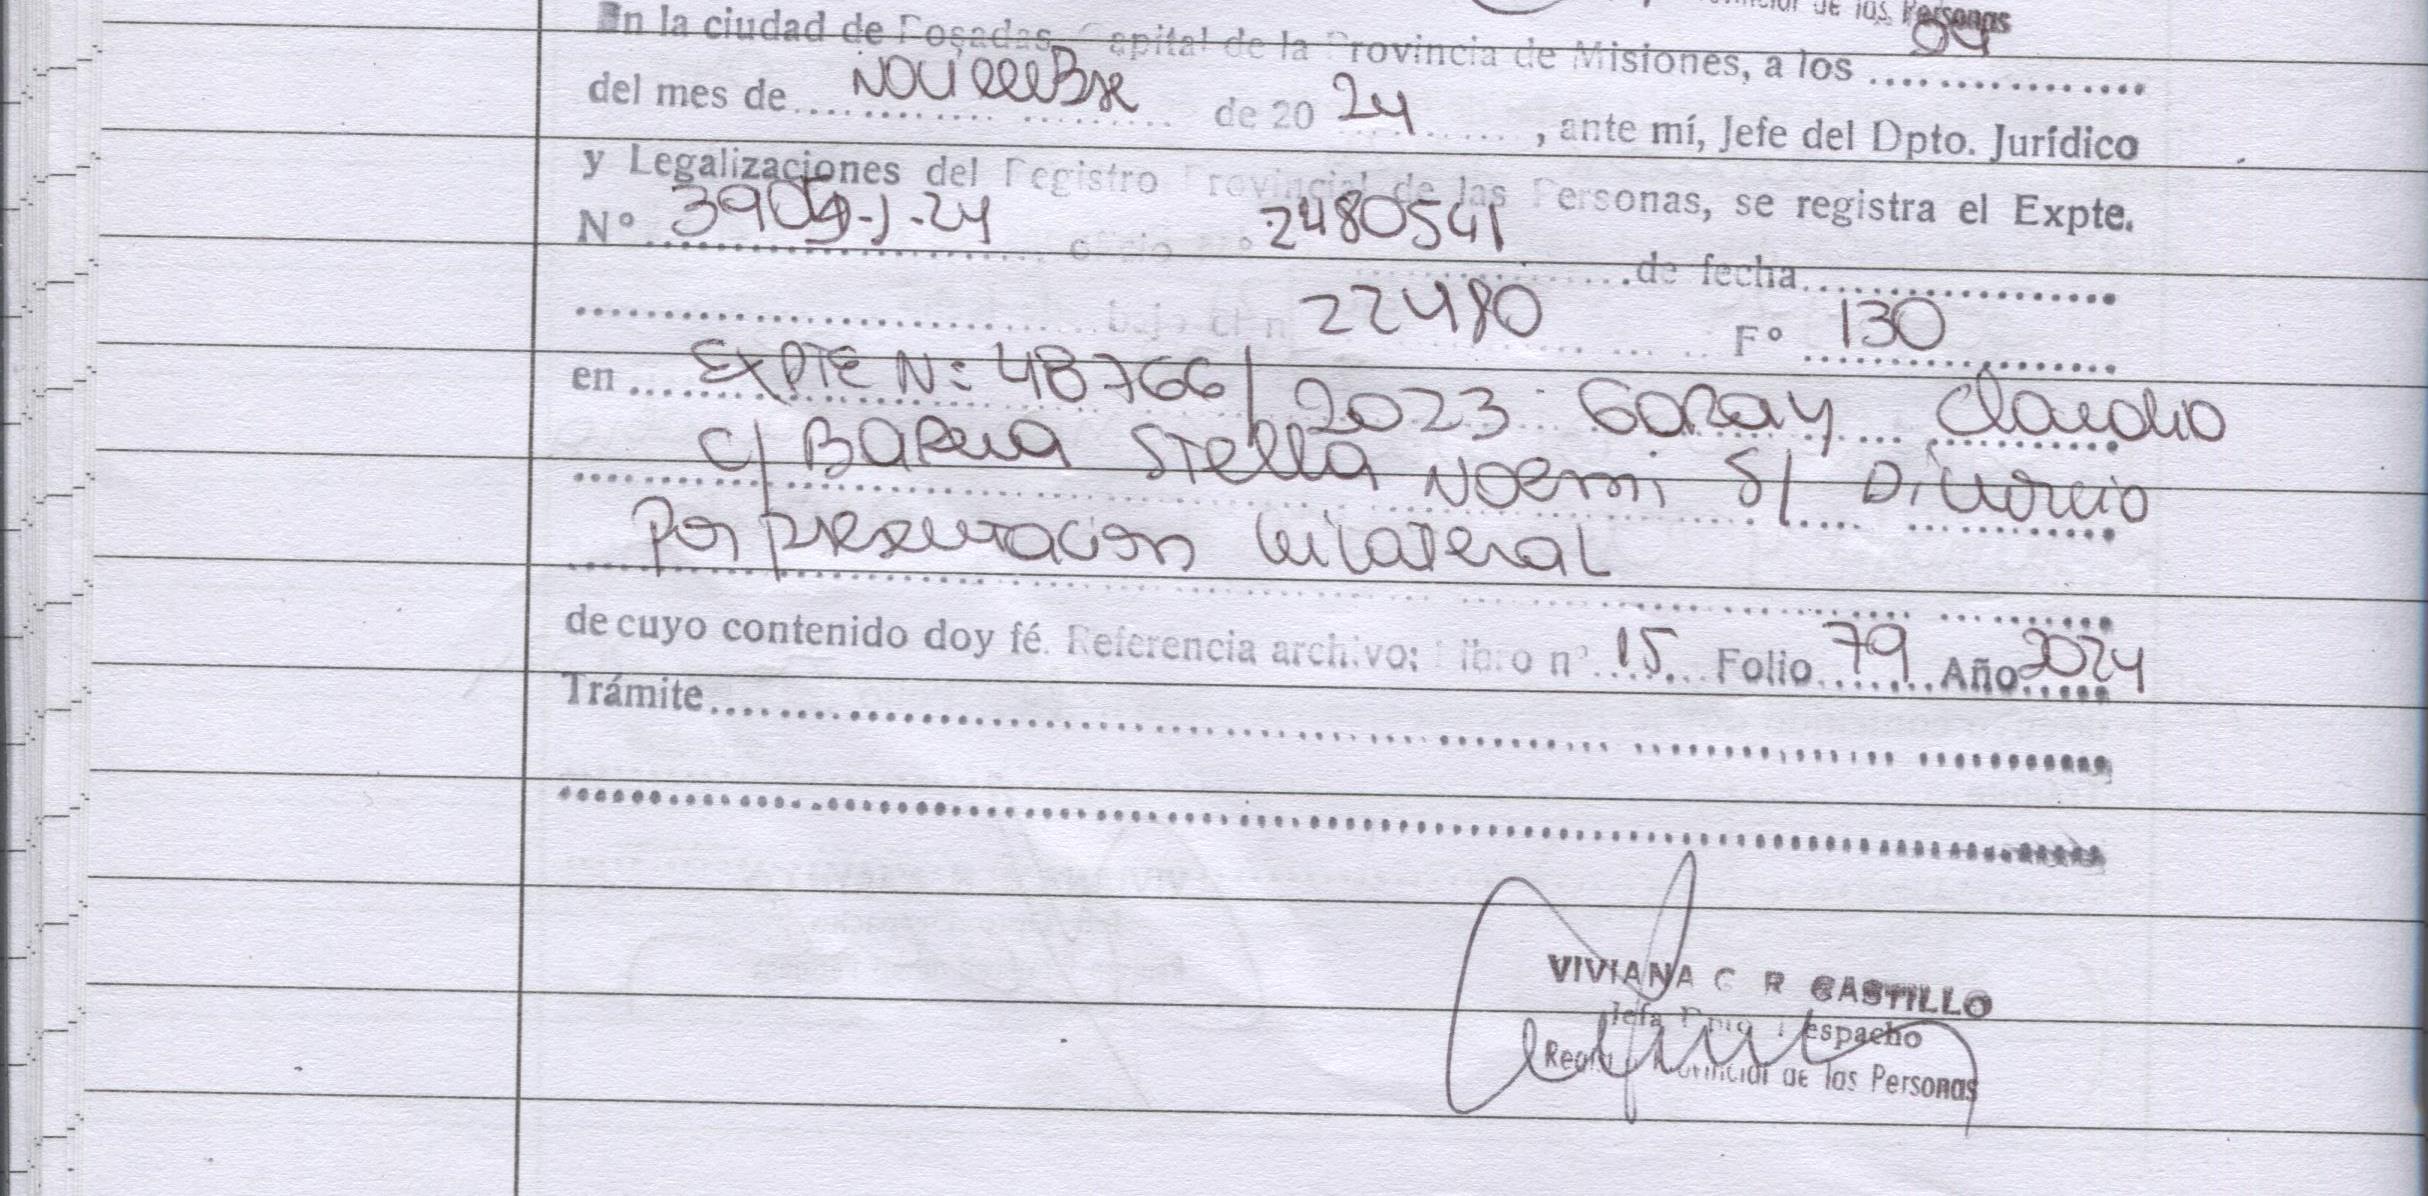 de las Personas
En la ciudad de Posadas, Capital de la Provincia de Misiones, a los 04
del mes de Noviembre de 2024, ante mí, Jefe del Dpto. Jurídico
y Legalizaciones del Registro Provincial de las Personas, se registra el Expte.
N° -J-24 oficio n° 2480541 de fecha
bajo el n 22480 F° 130
en Expte N: 48766/2023 Garay Claudio
c/ Barua Stella Noemi s/ Divorcio
por presentacion bilateral
de cuyo contenido doy fé. Referencia archivo: Libro n° 15 Folio 79 Año 2024
Trámite
VIVIANA C R CASTILLO
Jefa Dpto Despacho
Registro Provincial de las Personas